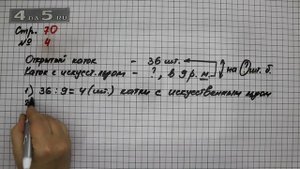 4da5.ru
Стр. 70
№ 4
Открытый каток - 36 шт.
Каток с искусст. льдом - ?, в 9 р. м.
на ? шт. б.
1) 36 : 9 = 4 (шт.) катки с искусственным льдом
2